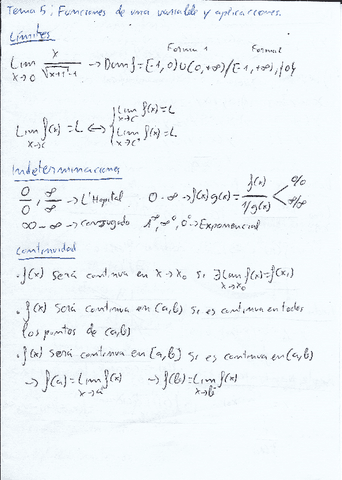 Tema 5: Funciones de una variable y aplicaciones.
Límites
Forma 1 Forma 2
Lim x→0 x/√(x+1)-1 → Dom f = [-1, 0) ∪ (0, +∞) / [-1, +∞), {0}
Lim x→c f(x) = L ⟺ { Lim x→c⁻ f(x) = L. Lim x→c⁺ f(x) = L.
Indeterminaciones
0/0, ∞/∞ → L'Hopital 0·∞ → f(x) g(x) = f(x)/1/g(x) < 0/0 ∞/∞
∞-∞ → conjugado 1^∞, ∞^0, 0^0 → Exponencial
Continuidad
· f(x) será continua en x→x₀ si ∃ Lim x→x₀ f(x) = f(x₀)
· f(x) será continua en (a,b) si es continua en todos
los puntos de (a,b)
· f(x) será continua en [a,b] si es continua en (a,b)
→ f(a) = Lim x→a⁺ f(x) → f(b) = Lim x→b⁻ f(x)